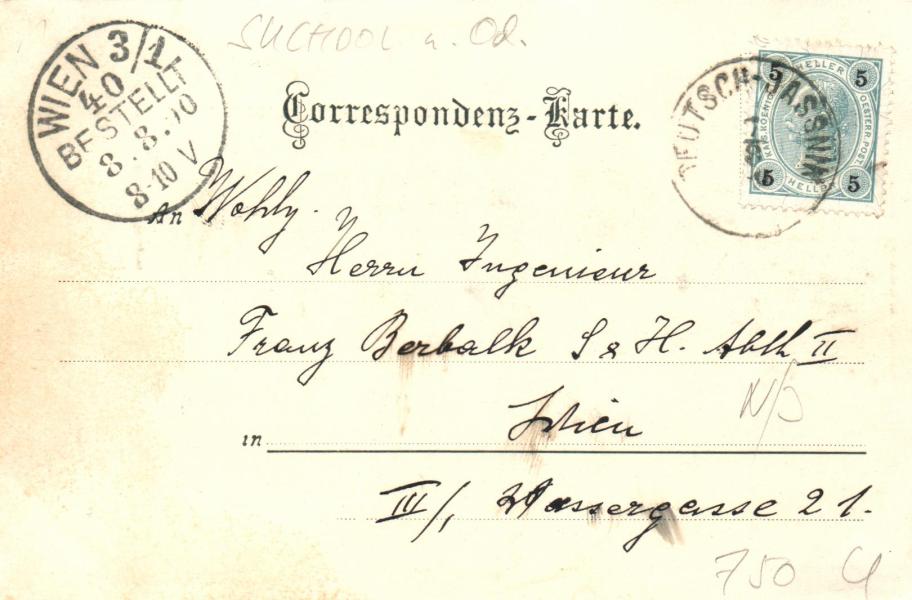 SUCHDOL n. Od.
WIEN 3/1
40
BESTELLT
8.8.00
8-10 V
Correspondenz-Karte.
DEUTSCH-JASSNIK
5 HELLER 5
KAIS. KOENIGL. OESTERR. POST.
5 HELLER 5
An Wohlg.
Herrn Ingenieur
Franz Berbalk S & H. Abth II
N/J
in Wien
III/1 Wassergasse 21.
750